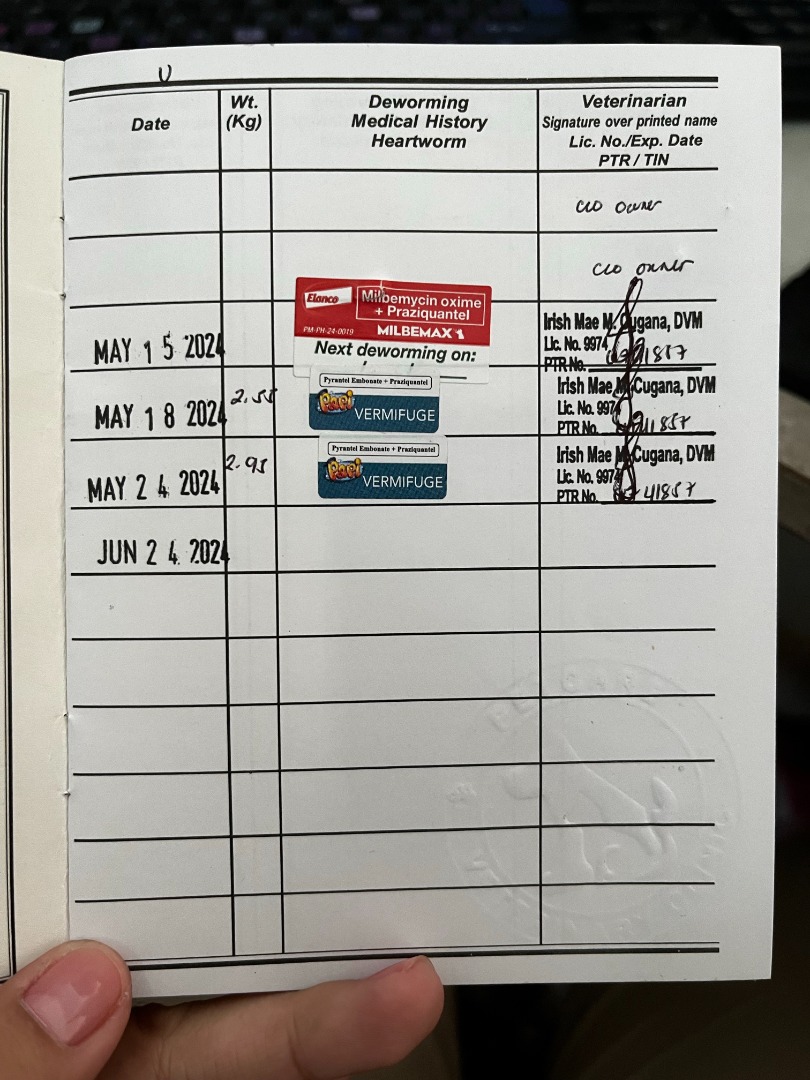 Date
Wt.
(Kg)
Deworming
Medical History
Heartworm
Veterinarian
Signature over printed name
Lic. No./Exp. Date
PTR / TIN
c/o owner
c/o owner
MAY 15 2024
Elanco
Milbemycin oxime
+ Praziquantel
PM-PH-24-0019
MILBEMAX
Next deworming on:
Irish Mae M. Cugana, DVM
Lic. No. 9974
PTR No.
MAY 18 2024
Pyrantel Embonate + Praziquantel
Papi
VERMIFUGE
Irish Mae M. Cugana, DVM
Lic. No. 9974
PTR No.
MAY 24 2024
Pyrantel Embonate + Praziquantel
Papi
VERMIFUGE
Irish Mae M. Cugana, DVM
Lic. No. 9974
PTR No.
JUN 24 2024